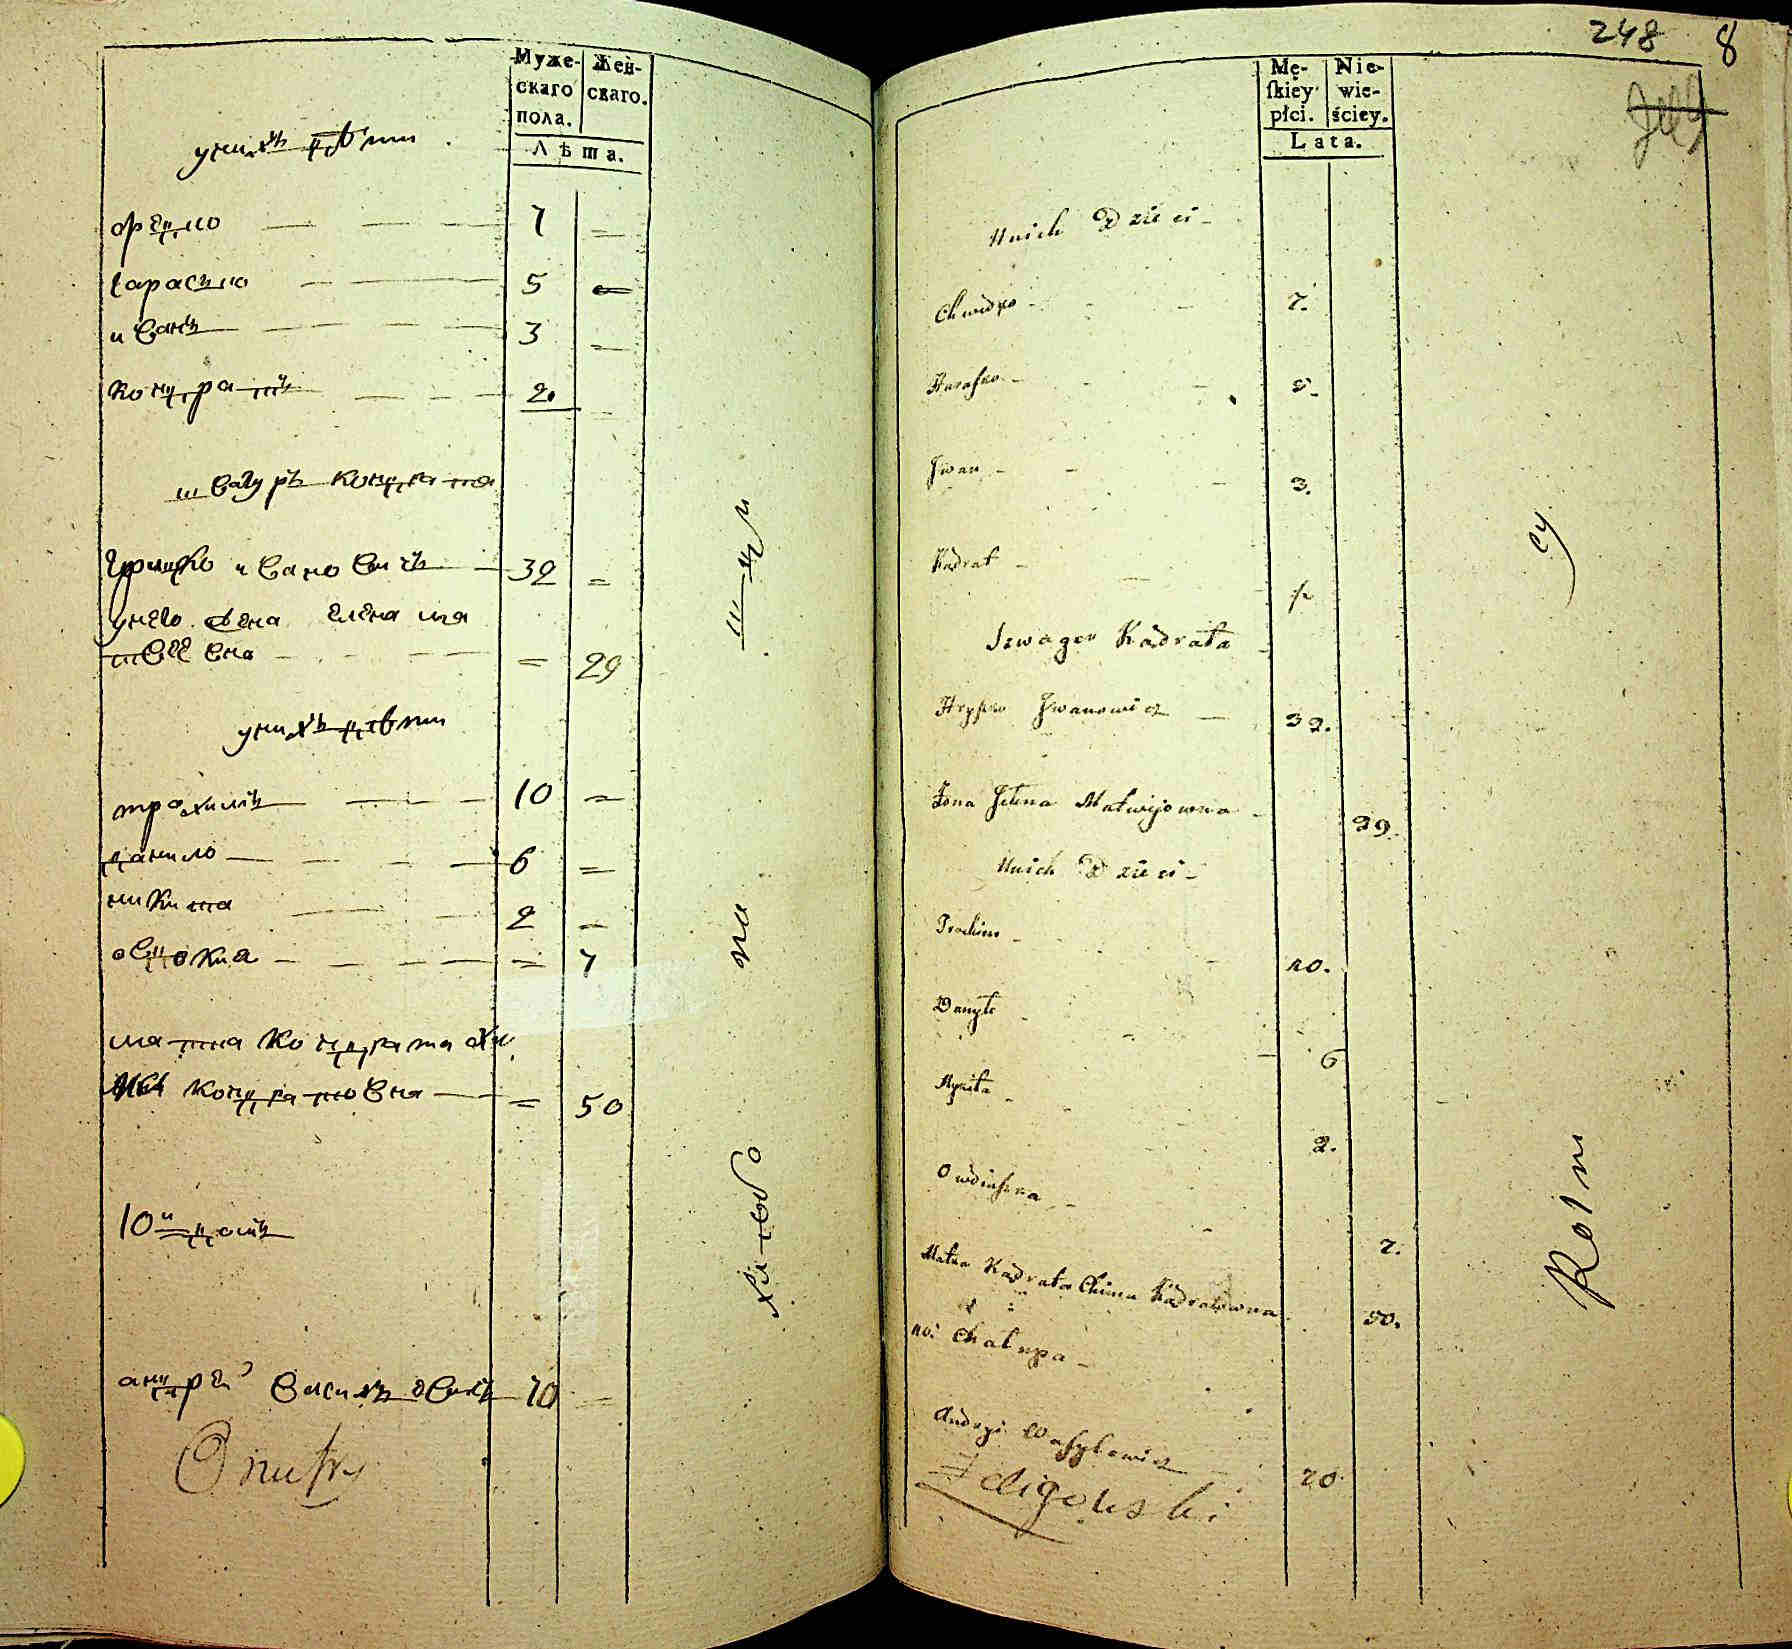 Муже-
скаго
пола.
Жен-
скаго.
Лѣта.
унихъ дѣти
7
гарасимо 5 =
иванъ 3 =
кондратъ 2. =
швагуръ кондрата
гришко ивановичъ 32 =
унего жена елена ма
твеевна = 29
унихъ дѣти
трохимъ 10 =
данило 6 =
никита 2 =
овдокиа = 7
матка кондрата
кондратовна = 50
10й домъ
андрей василевичъ 70 =
Onufry
248
8
Mę-
skiey
płci.
Nie-
wie-
ściey.
Lata.
Unich Dzieci
7.
Harasko 5.
Jwan 3.
Kądrat
Szwager Kądrata
Hryśko Jwanowicz 32.
Żona Jelena Matwijowna 29.
Unich Dzieci
Trochim 10.
Danyło 6
Mykita 2.
7.
Matka Kądrata Chima Kądratowna 50.
10. Chałupa
Andrzi Wasylewicz 70
Żeligowski